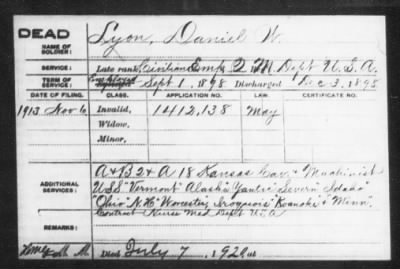 DEAD
NAME OF SOLDIER: Lyon, Daniel W.
SERVICE: Late rank, Civilian Emp, Q M Dept U.S.A.
TERM OF SERVICE: Employed Sept 1, 1898 Discharged Dec 3, 1898
DATE OF FILING. CLASS. APPLICATION NO. LAW. CERTIFICATE NO.
1913 Nov 6 Invalid, 1412,138 May
Widow,
Minor,
A & B 2 & A 18 Kansas Cav. & Machinist
ADDITIONAL SERVICES: U.S.S. "Vermont" Alaska "Yantic" Severn" Idaho"
"Ohio" N.H" Worcester, Iroquois" Roanoke & Minn".
Contract Nurse Med Dept U.S.A
REMARKS:
Died July 7, 1920, at